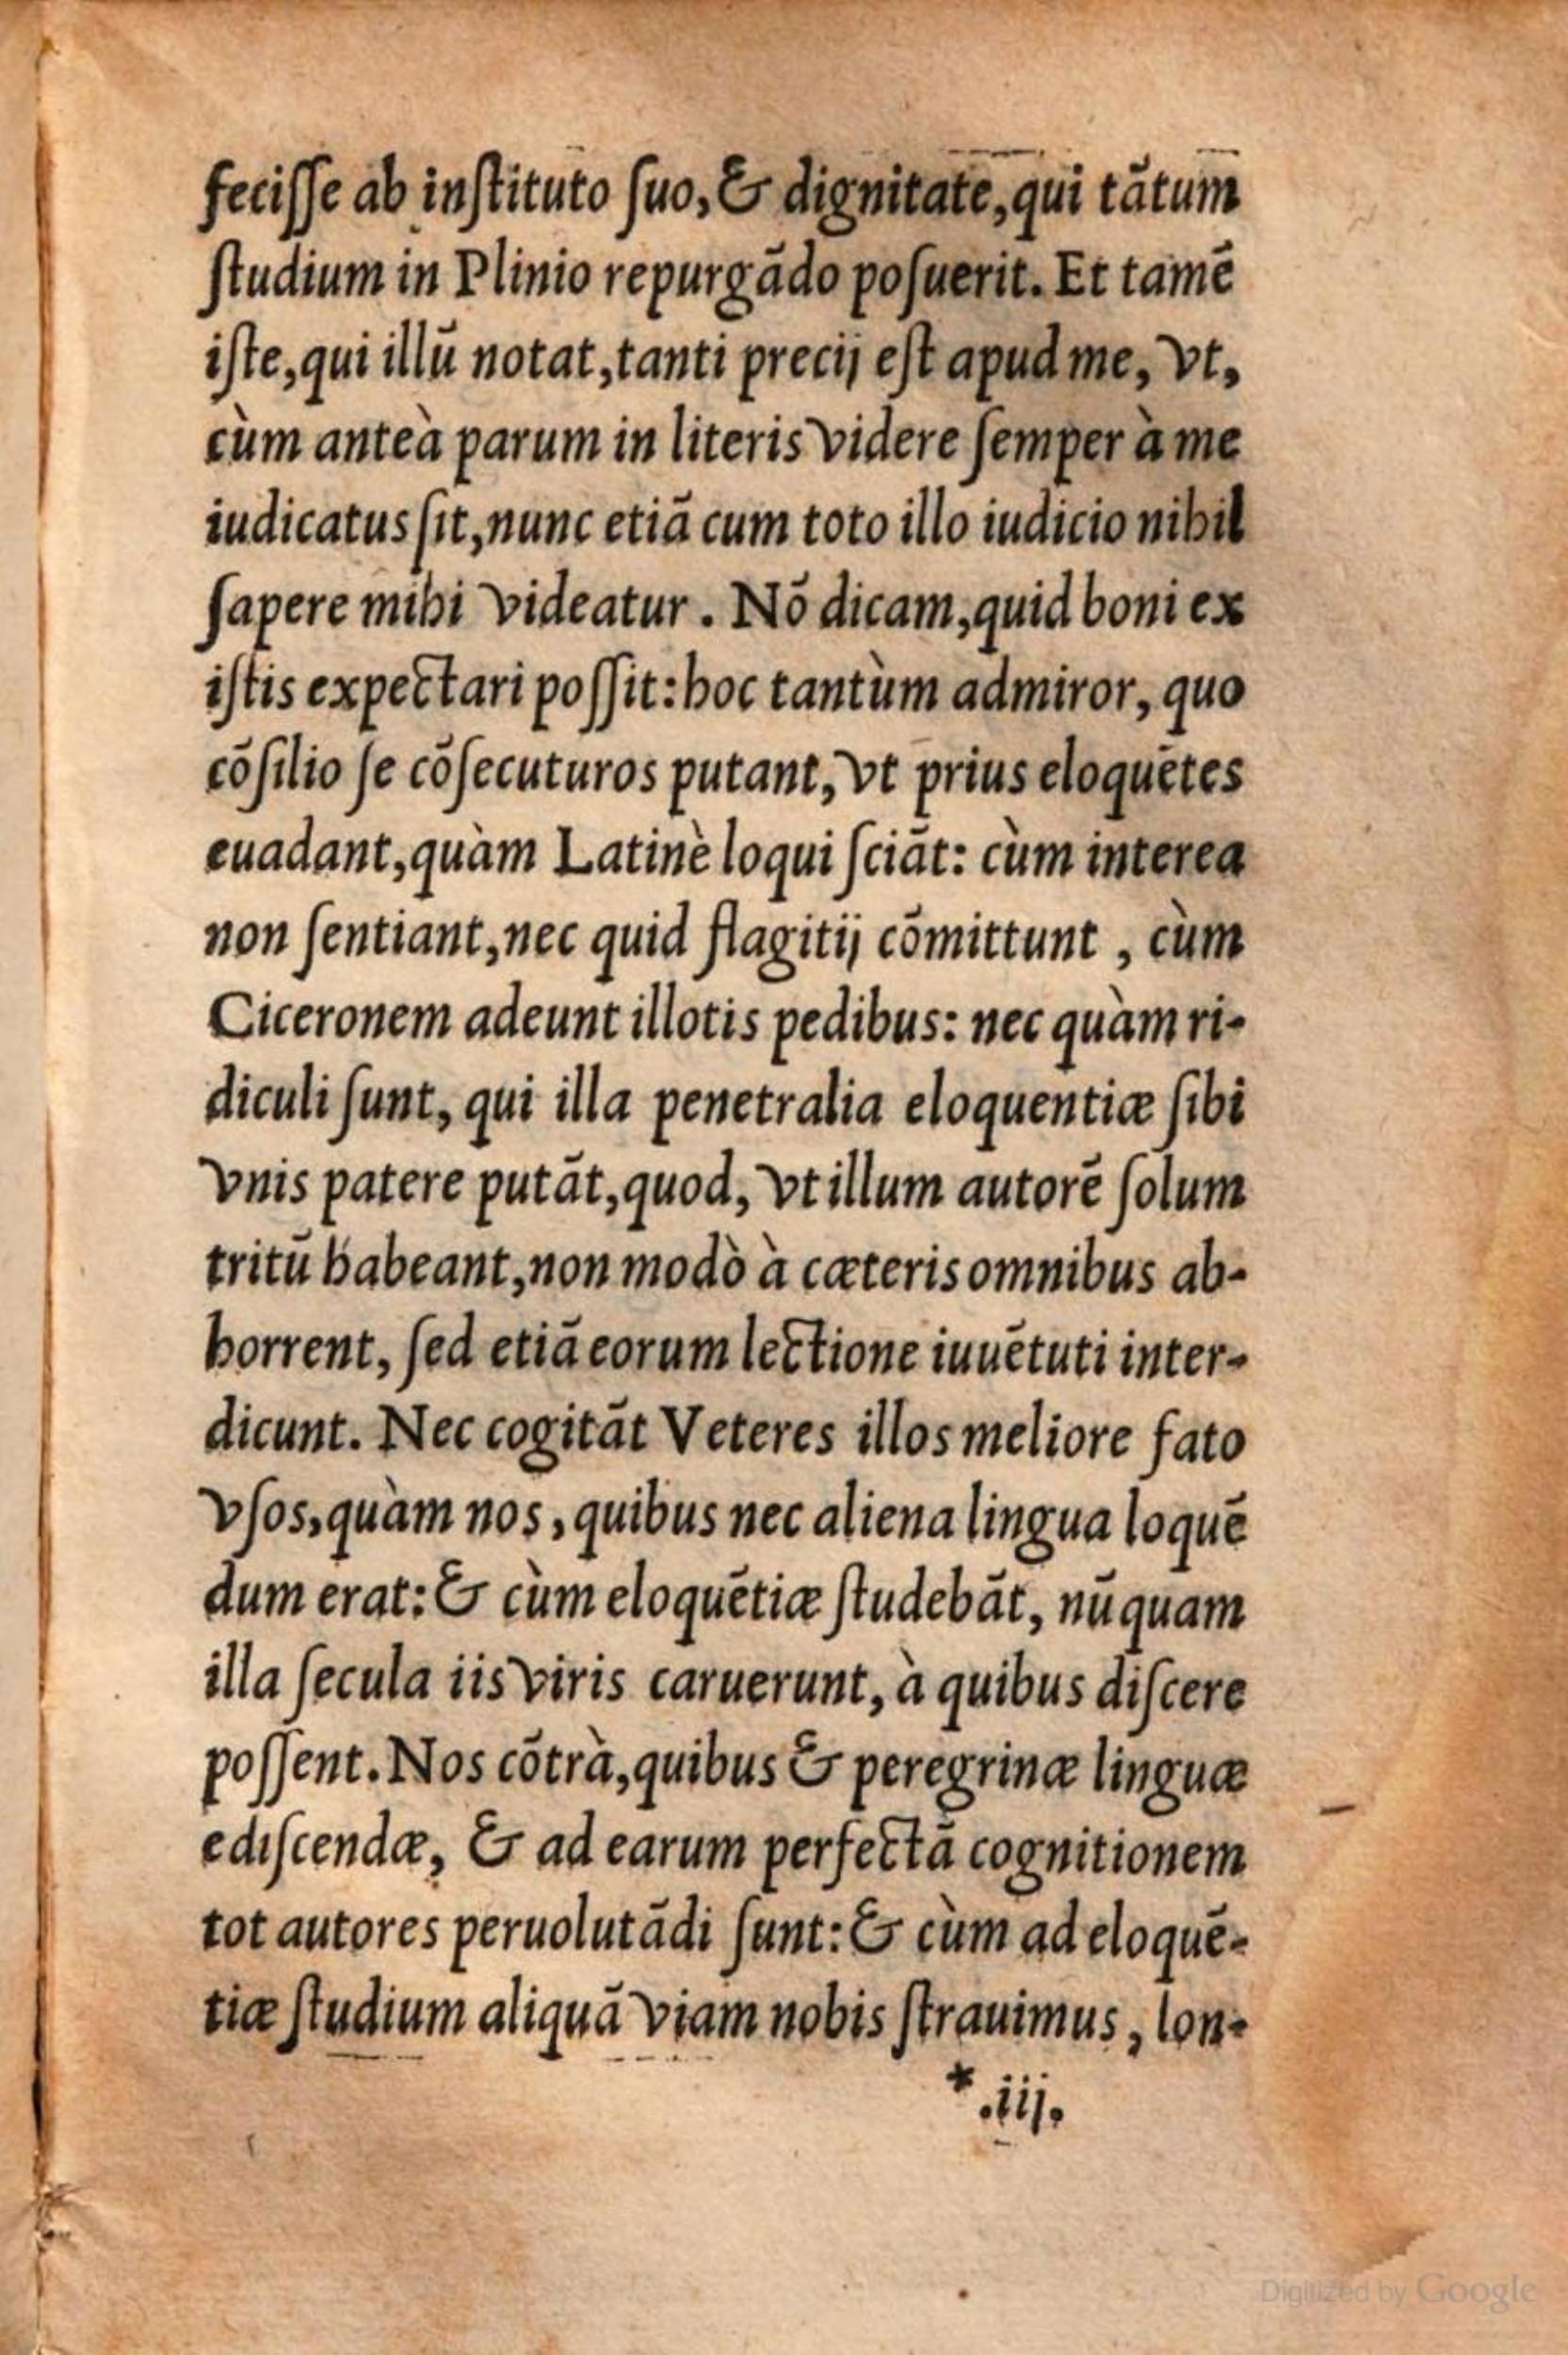 feciſſe ab inſtituto ſuo, & dignitate, qui tãtum
ſtudium in Plinio repurgãdo poſuerit. Et tamẽ
iſte, qui illũ notat, tanti precij eſt apud me, vt,
cùm anteà parum in literis videre ſemper à me
iudicatus ſit, nunc etiã cum toto illo iudicio nihil
ſapere mihi videatur. Nõ dicam, quid boni ex
iſtis expectari poſſit: hoc tantùm admiror, quo
cõſilio ſe cõſecuturos putant, vt prius eloquẽtes
euadant, quàm Latinè loqui ſciãt: cùm interea
non ſentiant, nec quid flagitij cõmittunt, cùm
Ciceronem adeunt illotis pedibus: nec quàm ri-
diculi ſunt, qui illa penetralia eloquentiæ ſibi
vnis patere putãt, quod, vt illum autorẽ ſolum
tritũ habeant, non modò à cæteris omnibus ab-
horrent, ſed etiã eorum lectione iuuẽtuti inter-
dicunt. Nec cogitãt Veteres illos meliore fato
vſos, quàm nos, quibus nec aliena lingua loquẽ
dum erat: & cùm eloquẽtiæ ſtudebãt, nũquam
illa ſecula iis viris caruerunt, à quibus diſcere
poſſent. Nos cõtrà, quibus & peregrinæ linguæ
ediſcendæ, & ad earum perfectã cognitionem
tot autores peruolutãdi ſunt: & cùm ad eloquẽ-
tiæ ſtudium aliquã viam nobis ſtrauimus, lon-
*.iij.
Digitized by Google